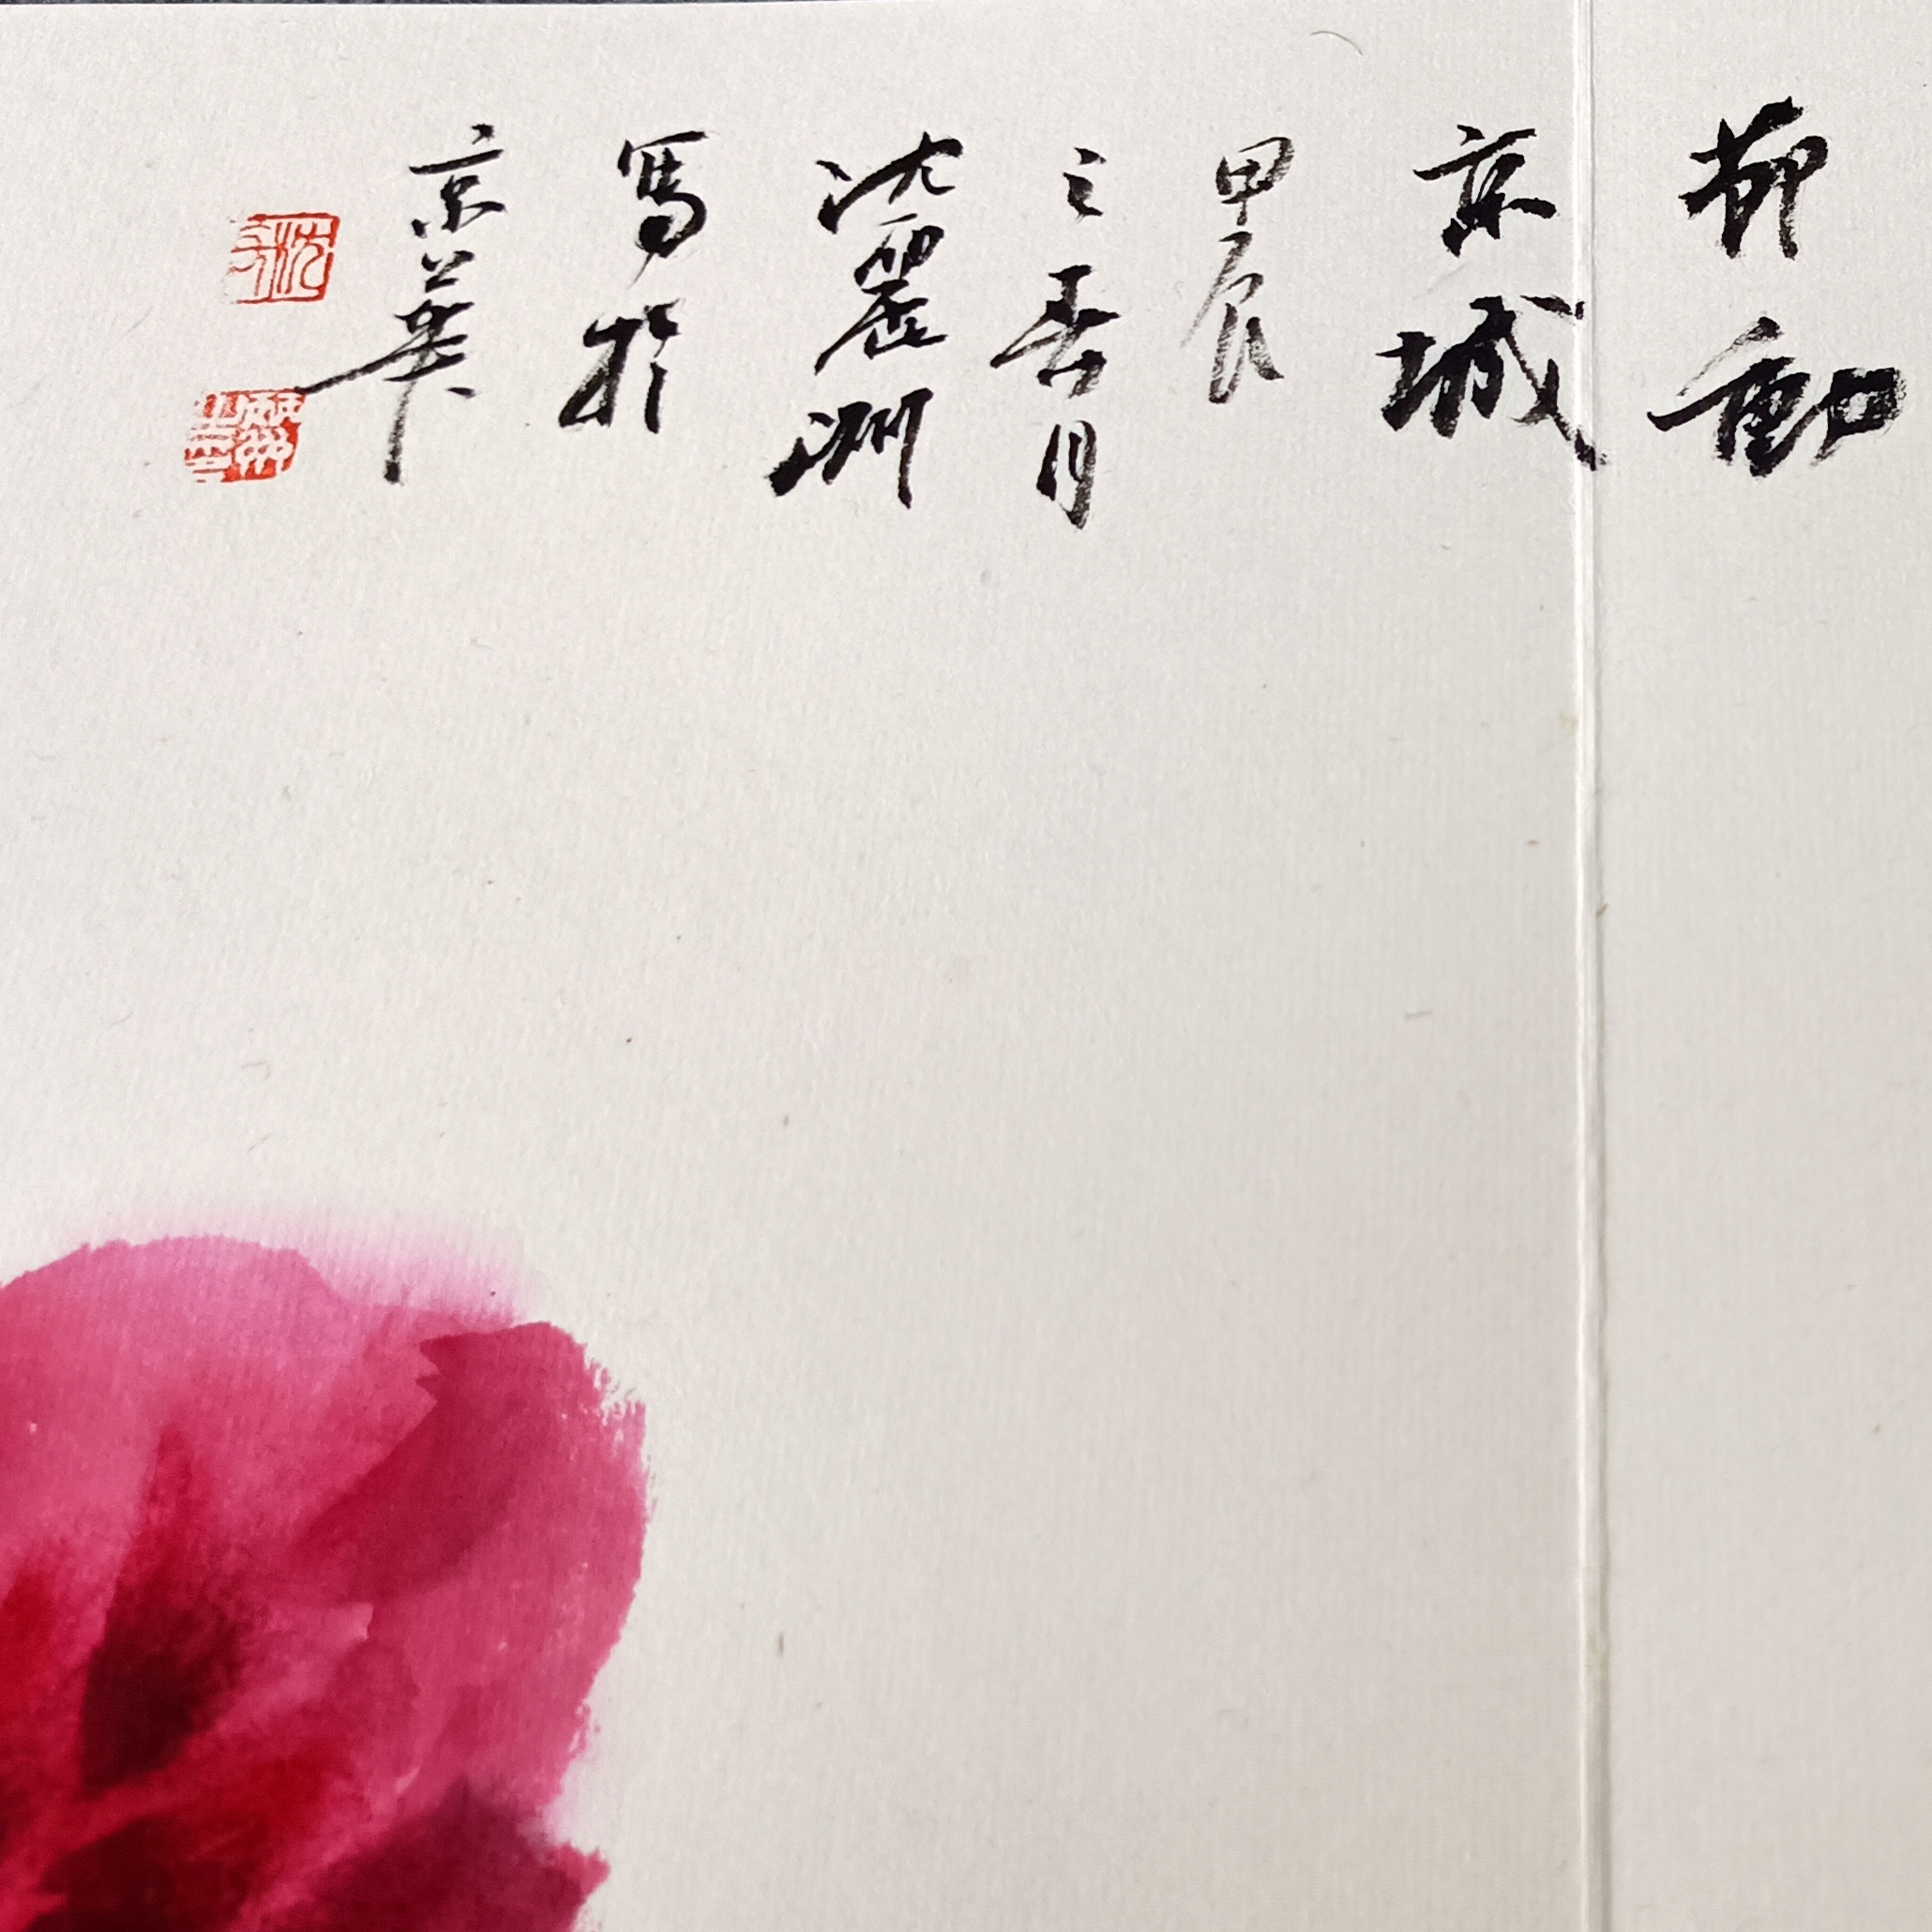 節動
京城
甲辰
之春月
沈麗洲
寫於
京華